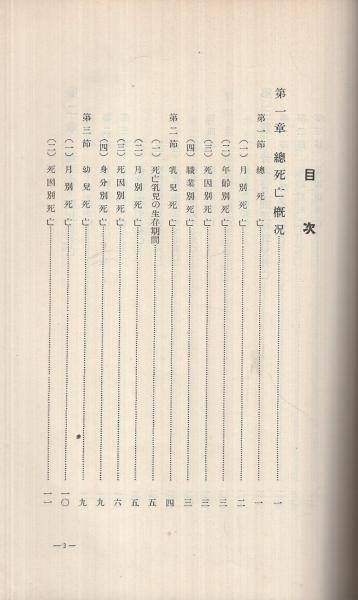 目次
第一章 總死亡概況………一
第一節 總死亡………一
(一) 月別死亡………二
(二) 年齡別死亡………三
(三) 死因別死亡………三
(四) 職業別死亡………三
第二節 乳兒死亡………四
(一) 死亡乳兒の生存期間………五
(二) 月別死亡………五
(三) 死因別死亡………六
(四) 身分別死亡………九
第三節 幼兒死亡………九
(一) 月別死亡………一〇
(二) 死因別死亡………一一
—3—